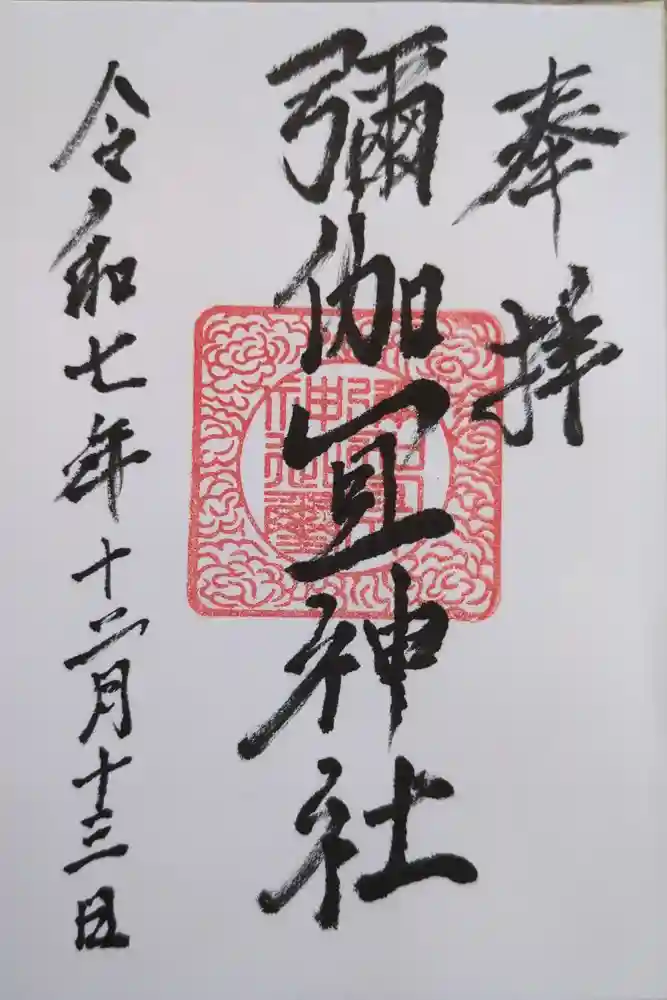 奉拝
彌伽宜神社
令和七年十二月十三日